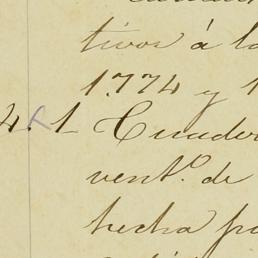 tivos á la
1774 y 1
4. 1 Cuader
vent.º de
hecha po